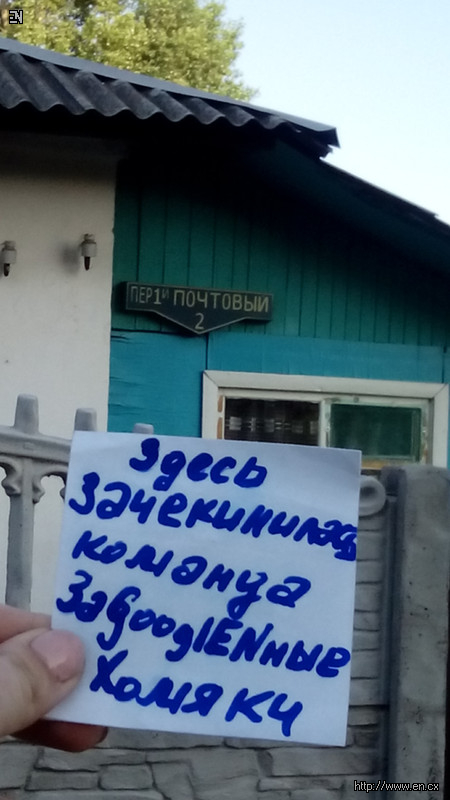 EN
ПЕР 1й ПОЧТОВЫЙ
2
Здесь
зачекинилась
команда
ЗаGooglENные
Хомяки
http://www.en.cx